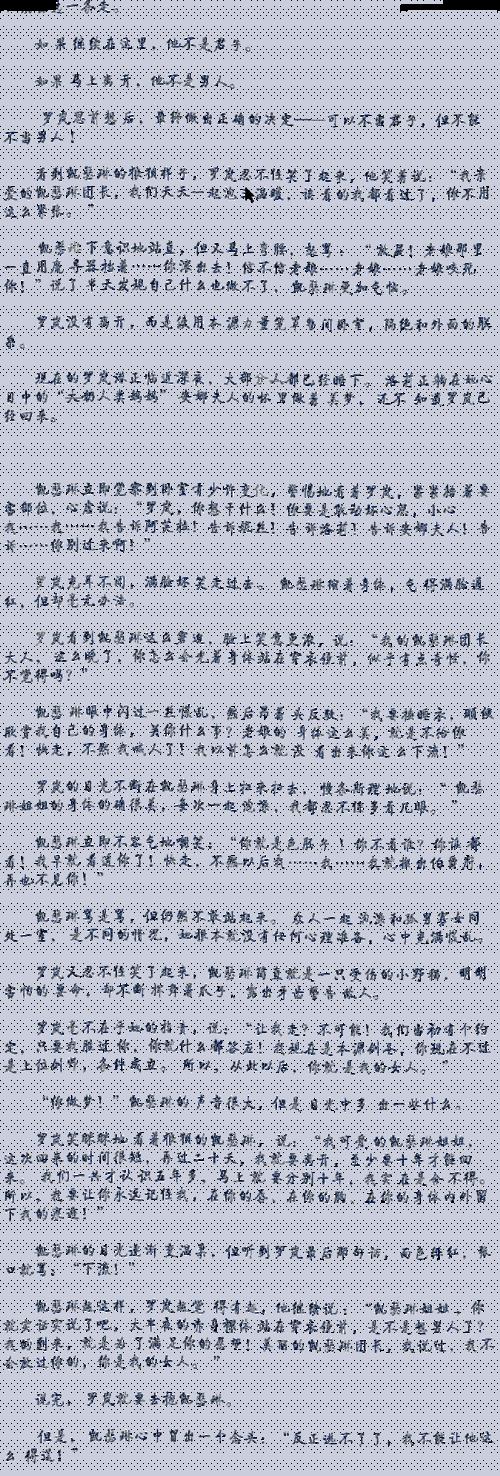 如果继续在这里，他不是君子。
如果马上离开，他不是男人。
罗岚思前想后，最终做出正确的决定——可以不当君子，但不能
不当男人！
看到凯瑟琳的狼狈样子，罗岚忍不住笑了起来，他笑着说：“我亲
爱的凯瑟琳团长，我们天天一起泡温暖，该看的我都看过了，你不用
这么紧张。”
凯瑟琳下意识地站直，但又马上弯腰，怒骂：“放屁！老娘那里
一直用魔导器挡着……你滚出去！信不信老娘……老娘……老娘咬死
你！”说了半天发现自己什么也做不了，凯瑟琳更加气恼。
罗岚没有离开，而是使用本源力量笼罩整间卧室，隔绝和外面的联
系。
现在的罗岚诺正临近深夜，大部分人都已经睡下。洛茗正躺在她心
目中的“大奶人类妈妈”安娜夫人的怀里做着美梦，还不知道罗岚已
经回来。
凯瑟琳立即觉察到卧室有少许变化，警惕地看着罗岚，紧紧捂着要
害部位，心虚说：“罗岚，你想干什么！你要是敢动坏心思，小心
我……我……我告诉阿芙拉！告诉依丝！告诉洛茗！告诉安娜夫人！告
诉……你别过来啊！”
罗岚充耳不闻，满脸坏笑走过去。凯瑟琳缩着身体，气得满脸通
红，但却毫无办法。
罗岚看到凯瑟琳这么窘迫，脸上笑意更浓，说：“我的凯瑟琳团长
大人，这么晚了，你怎么会光着身体站在穿衣镜前，似乎有点奇怪，你
不觉得吗？”
凯瑟琳眼中闪过一丝慌乱，然后昂着头反驳：“我要换睡衣，顺便
欣赏我自己的身体，关你什么事？老娘的身体这么美，就是不给你
看！快走，不然我喊人了！我以前怎么就没看出来你这么下流！”
罗岚的目光不断在凯瑟琳身上扫来扫去，慢条斯理地说：“凯瑟
琳姐姐的身体的确很美，每次一起洗澡，我都忍不住多看几眼。”
凯瑟琳立即不客气地嘲笑：“你就是色胚子！你不看谁？你谁都
看！我早就看透你了！快走，不然以后我……我……我就搬出伯爵府，
再也不见你！”
凯瑟琳骂是骂，但仍然不敢站起来。众人一起泡澡和孤男寡女同
处一室，是不同的情况，她根本就没有任何心理准备，心中充满慌乱。
罗岚又忍不住笑了起来，凯瑟琳简直就是一只受伤的小野猫，明明
害怕的要命，却不断挥舞着爪子，露出牙齿警告敌人。
罗岚毫不在乎她的指责，说：“让我走？不可能！我们当初有个约
定，只要我胜过你，你就什么都答应！我现在是本源剑圣，你现在不过
是上位剑师，条件成立。所以，从此以后，你就是我的女人。”
“你做梦！”凯瑟琳的声音很大，但是目光中多出一些什么。
罗岚笑眯眯地看着狼狈的凯瑟琳，说：“我可爱的凯瑟琳姐姐，
这次回来的时间很短，再过二十天，我就要离开，至少要十年才能回
来。我们一共才认识五年多，马上就要分别十年，我实在是舍不得。
所以，我要让你永远记住我，在你的唇、在你的胸、在你的身体内外留
下我的痕迹！”
凯瑟琳的目光逐渐变温柔，但听到罗岚最后那句话，面色绯红，张
口就骂：“下流！”
凯瑟琳越这样，罗岚越觉得有趣，他继续说：“凯瑟琳姐姐，你
就实话实说了吧，大半夜的赤身裸体站在穿衣镜前，是不是想男人了？
我的到来，就是为了满足你的愿望！美丽的凯瑟琳团长，我说过，我不
会放过你的，你是我的女人。”
说完，罗岚就要去抱凯瑟琳。
但是，凯瑟琳心中冒出一个念头：“反正逃不了了，我不能让他这
么得逞！”